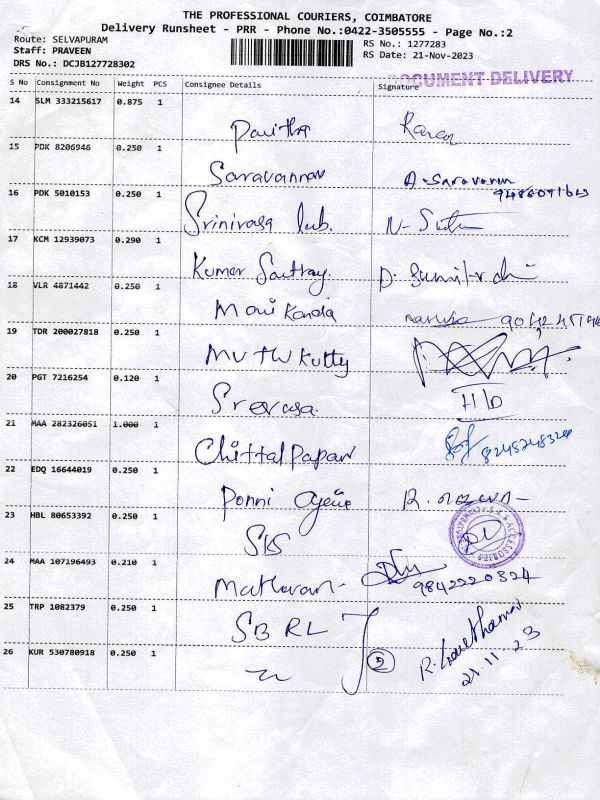 THE PROFESSIONAL COURIERS, COIMBATORE
Delivery Runsheet - PRR - Phone No.:0422-3505555 - Page No.:2
Route: SELVAPURAM
Staff: PRAVEEN
RS No.: 1277283
DRS No.: DCJB127728302
RS Date: 21-Nov-2023
DOCUMENT DELIVERY
S No Consignment No Weight PCS Consignee Details Signature
14 SLM 333215617 0.875 1
Pavithra
15 PDK 8206946 0.250 1
Saravannan A. Saravanan
16 PDK 5010153 0.250 1
Srinivasa Lab.
17 KCM 12939073 0.290 1
Kumar
18 VLR 4871442 0.250 1
Mani Kanda
19 TDR 200027818 0.250 1
Muthu Kutty
20 PGT 7216254 0.120 1
H/D
21 MAA 282326051 1.000 1
Chittalpapan
22 EDQ 16644019 0.250 1
Ponni
23 HBL 80653392 0.250 1
SKS
24 MAA 107196493 0.210 1
Matharan 9842220824
25 TRP 1082379 0.250 1
SBRL
26 KUR 530780918 0.250 1
2
21.11.23